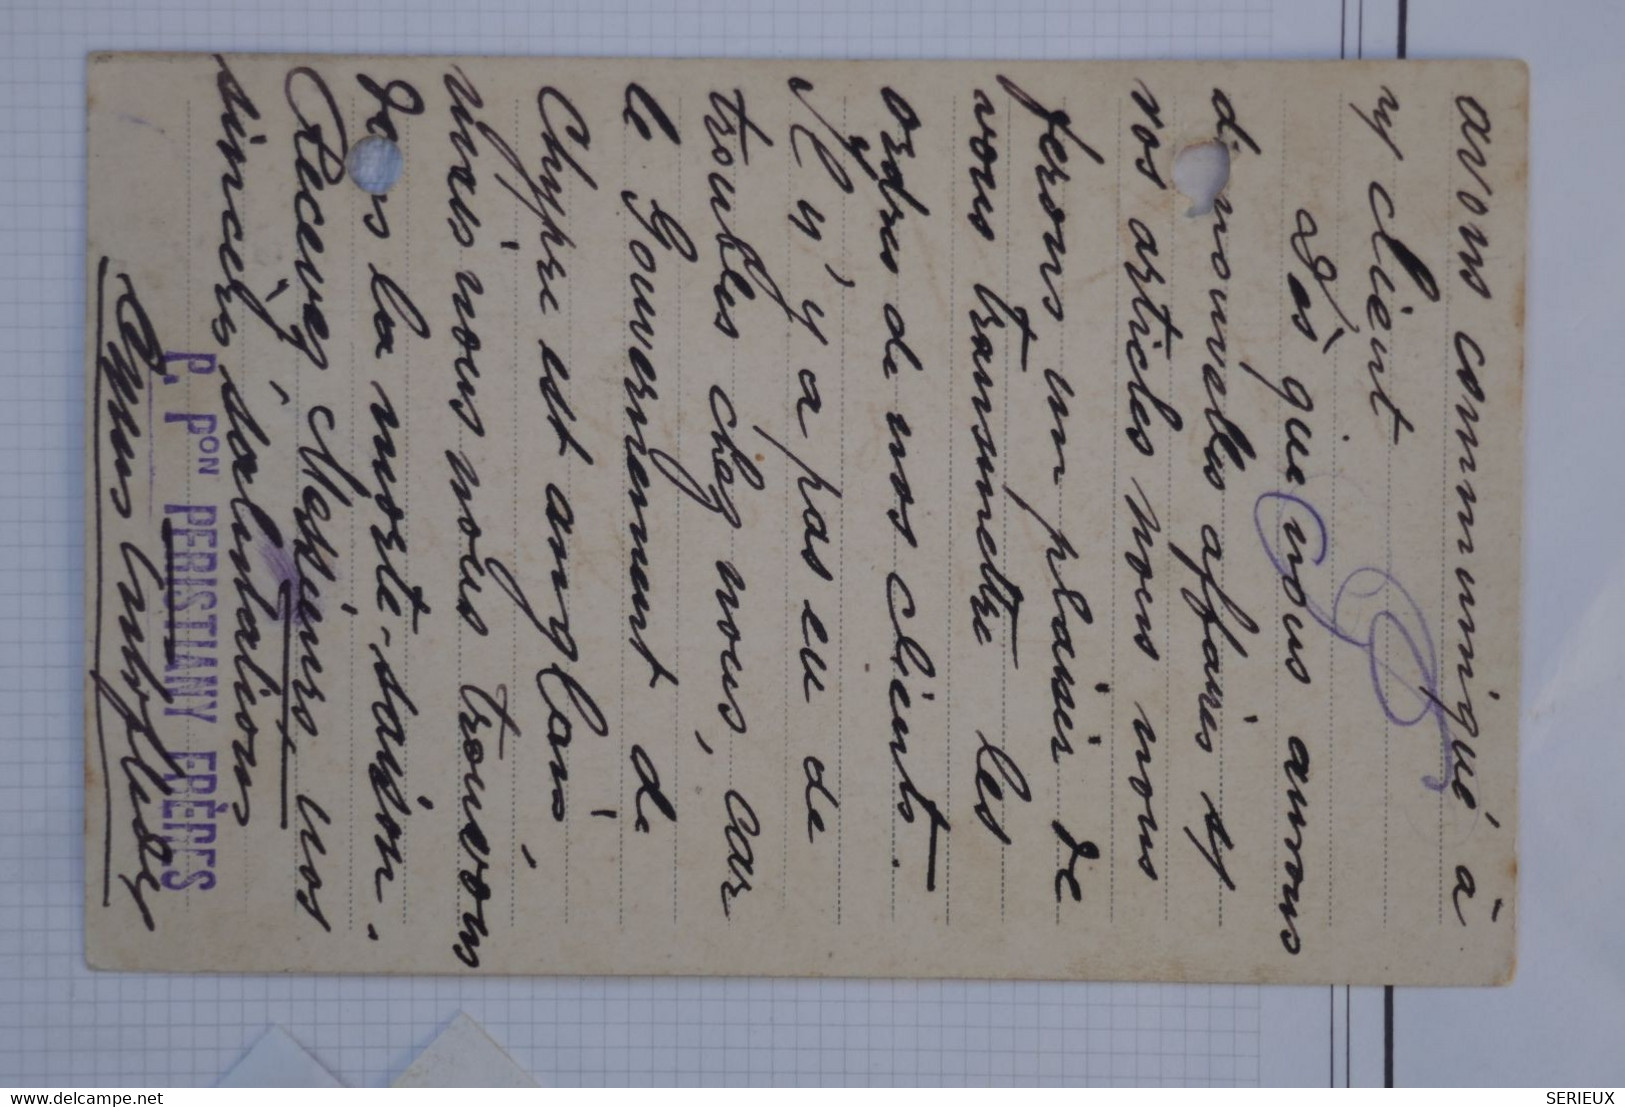 avons communiqué à
client
Dès que nous aurons
de nouvelles affaires
vos articles nous nous
ferons un plaisir de
vous transmettre les
ordres de nos clients.
Il n'y a pas eu de
troubles chez nous, car
le Gouvernement de
Chypre est anglais
mais nous nous trouvons
dans la morte-saison.
Recevez Messieurs, nos
sincères salutations
P. PON PERISTIANY FRÈRES
SERIEUX
delcampe.net